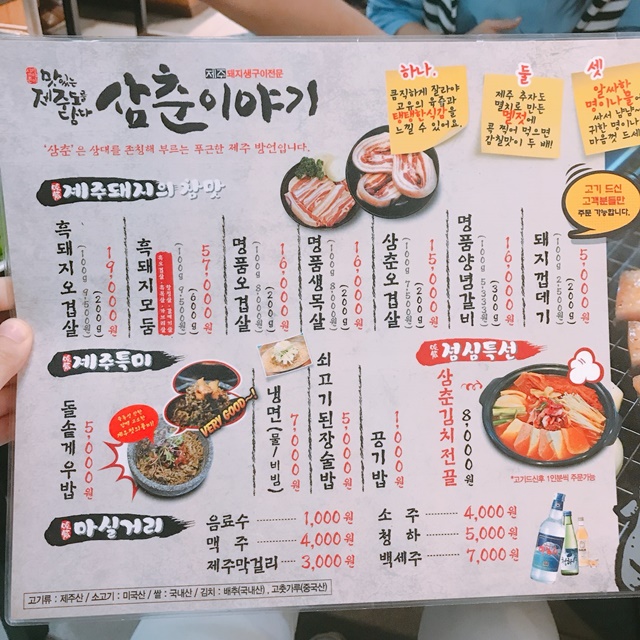 맛있는
제주도를
담다
삼춘이야기
제주 돼지생구이전문
"삼춘"은 상대를 존칭해 부르는 푸근한 제주 방언입니다.
하나.
큼직하게 잘라야
고유의 육즙과
탱탱한식감을
느낄 수 있어요.
둘
제주 추자도
멸치로 만든
멜젓에
콕 찍어 먹으면
감칠맛이 두 배!
셋
알싸한
명이나물에
싸서 냠냠~
귀한 명이나
마음껏 드세
고기 드신
고객분들만
주문 가능합니다.
제주돼지의 참맛
흑돼지오겹살 (100g 9,500원) (200g) 19,000원
흑돼지모둠 (100g 9,500원) (600g) 57,000원
명품오겹살 (100g 8,000원) (200g) 16,000원
명품생목살 (100g 8,000원) (200g) 16,000원
삼춘오겹살 (100g 7,500원) (200g) 15,000원
명품양념갈비 (100g 5,333원) (300g) 16,000원
돼지껍데기 (100g 2,500원) (200g) 5,000원
제주특미
돌솥게우밥 5,000원
VERY GOOD~!
냉면(물/비빔) 7,000원
쇠고기된장술밥 5,000원
공기밥 1,000원
점심특선
삼춘김치전골 8,000원
*고기드신후 1인분씩 주문가능
마실거리
음료수 1,000원
맥주 4,000원
제주막걸리 3,000원
소주 4,000원
청하 5,000원
백세주 7,000원
고기류 : 제주산 / 소고기 : 미국산 / 쌀 : 국내산 / 김치 : 배추(국내산), 고춧가루(중국산)